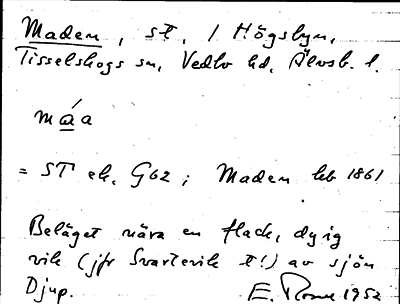 Maden, st, / Högsbyn,
Tisselskogs sn, Vedbo hd, Älvsb. l.
máa
= ST ek. G62; Maden hb 1861
Beläget nära en flack, dyig
vik (jfr Svartevik t!) av sjön
Djup. E. 1952